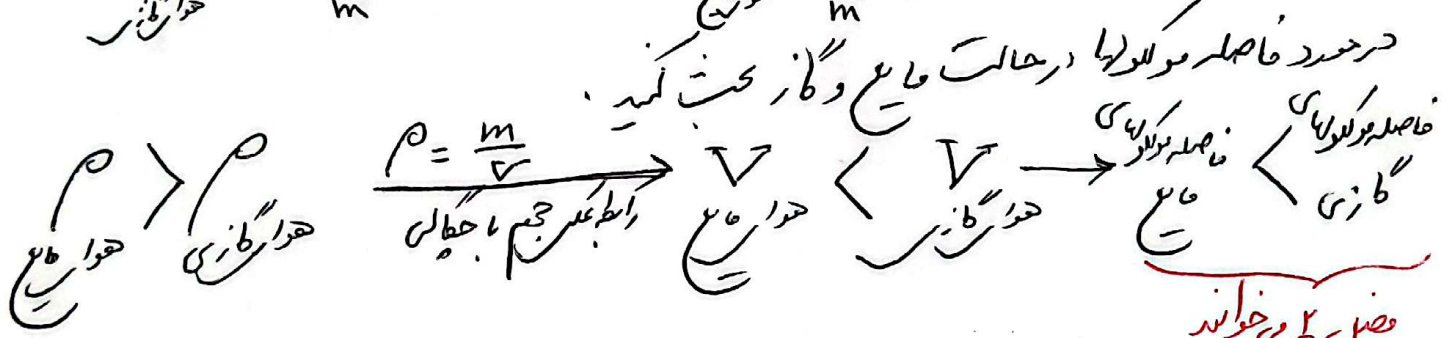 هوای گازی m m
در مورد فاصله مولکولها در حالت مایع و گاز بحث کنید.
ρ هوای مایع > ρ هوای گازی ρ = m/V رابطه عکس حجم با چگالی → V هوای مایع < V هوای گازی → فاصله مولکولهای مایع < فاصله مولکولهای گازی
می‌خوانند